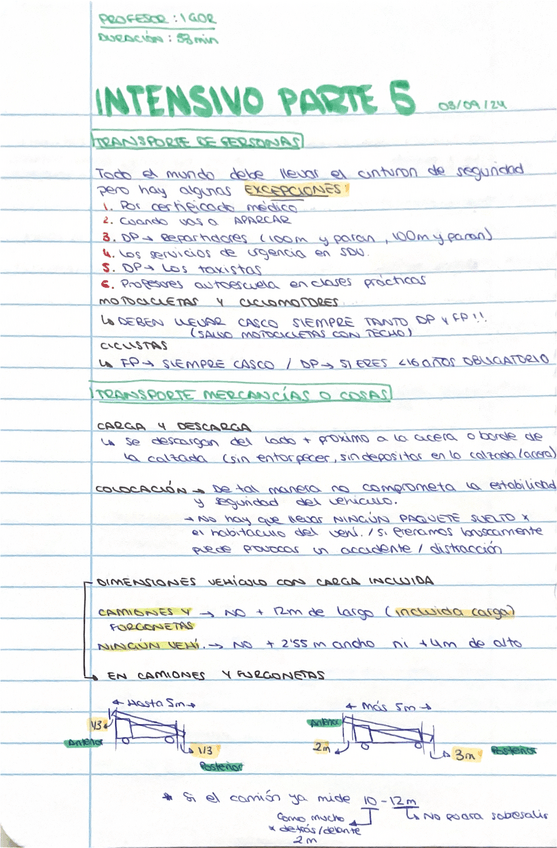 PROFESOR : IGOR
DURACIÓN : 58 min
INTENSIVO PARTE 6 03/09/24
TRANSPORTE DE PERSONAS
Todo el mundo debe llevar el cinturon de seguridad
pero hay algunas EXCEPCIONES:
1. Por certificado médico
2. Cuando vas a APARCAR
3. DP → Repartidores (100m y paran, 100m y paran)
4. Los servicios de urgencia en SDU.
5. DP → Los taxistas
6. Profesores autoescuela en clases prácticas
MOTOCICLETAS Y CICLOMOTORES
↳ DEBEN LLEVAR CASCO SIEMPRE TANTO DP Y FP!!
(SALVO MOTOCICLETAS CON TECHO)
CICLISTAS
↳ FP → SIEMPRE CASCO / DP → SI ERES <16 AÑOS OBLIGATORIO
TRANSPORTE MERCANCÍAS O COSAS
CARGA Y DESCARGA
↳ Se descargan del lado + próximo a la acera o borde de
la calzada (sin entorpecer, sin depositar en la calzada/acera)
COLOCACIÓN → De tal manera no comprometa la estabilidad
y seguridad del vehículo.
→ No hay que llevar NINGÚN PAQUETE SUELTO x
el habitáculo del vehí. / si frenamos bruscamente
puede provocar un accidente / distracción
DIMENSIONES VEHÍCULO CON CARGA INCLUIDA
CAMIONES Y → NO + 12m de largo (incluida carga)
FURGONETAS
NINGÚN VEHÍ. → NO + 2'55 m ancho ni +4m de alto
EN CAMIONES Y FURGONETAS
← Hasta 5m → ← Más 5m →
1/3 Anterior
Anterior 1/3 2m 3m Posterior
Posterior
* Si el camión ya mide 10 - 12m
Como mucho ↳ No podrá sobresalir
x detrás/delante
2m